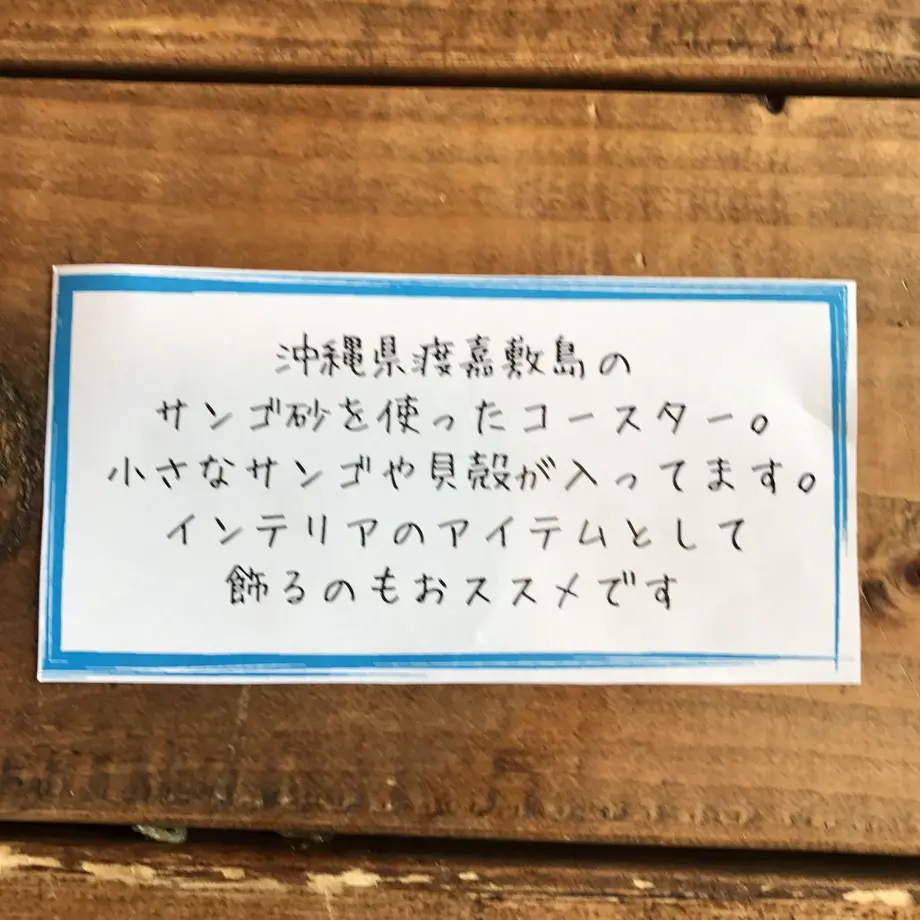 沖縄県渡嘉敷島の
サンゴ砂を使ったコースター。
小さなサンゴや貝殻が入ってます。
インテリアのアイテムとして
飾るのもおススメです